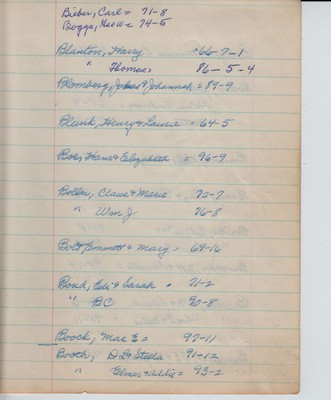 Bieber, Carl = 71-8
Boggs, = 74-5
Blanton, Harry = 66-7-1
" Thomas 86-5-4
Blomberg, & Johannah = 89-9
Blunk, Henry & Laura = 64-5
Boe, Hans & Elizabeth = 96-9
Bolln, Claus & Marie 92-7
" Wm J 76-8
Bolt Emmett & Mary = 69-16
Bond, Eli & Sarah = 71-2
" BC 90-8
Boock, Mae E = 97-11
Booth, D L & Stella 91-12
" Elmer & Addie = 93-2